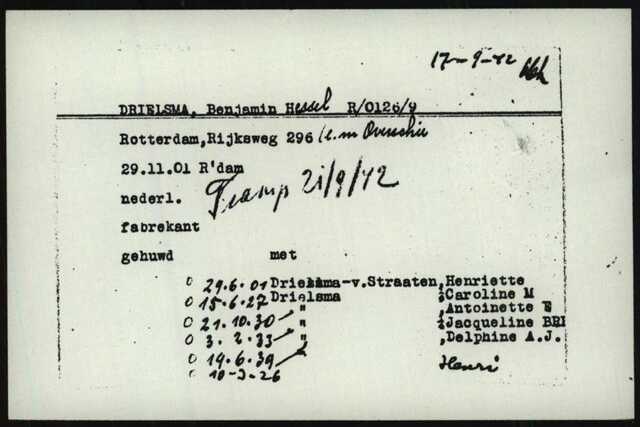 17-9-42
DRIELSMA, Benjamin Hessel R/0126/9
Rotterdam,Rijksweg 296 Overschie
29.11.01 R'dam
nederl.
Transp 21/9/42
fabrekant
gehuwd met
O 29.6.01 Drielsma-v.Straaten, Henriette
O 15.6.27 Drielsma , Caroline M
O 21.10.30 " , Antoinette E
O 3.2.33 " , Jacqueline
O 19.6.39 " , Delphine A.J.
O 10-3-26 Henri